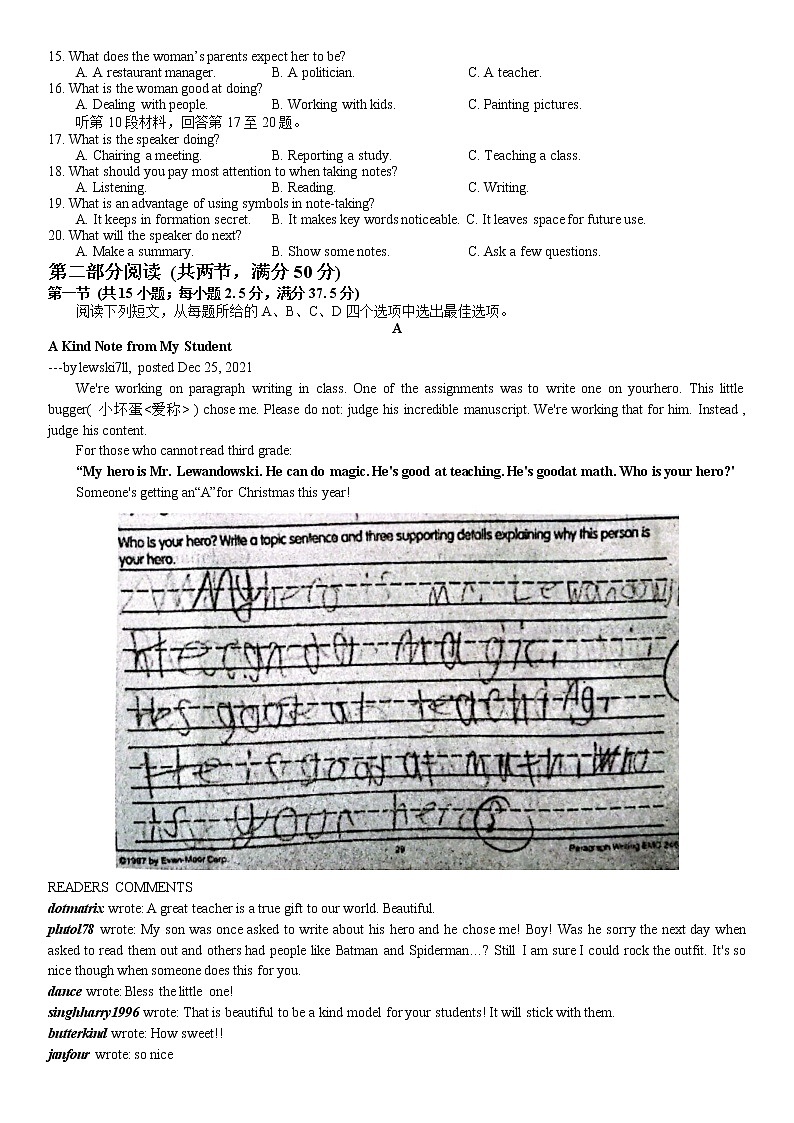 15. What does the woman's parents expect her to be?
A. A restaurant manager. B. A politician. C. A teacher.
16. What is the woman good at doing?
A. Dealing with people. B. Working with kids. C. Painting pictures.
听第 10 段材料，回答第 17 至 20 题。
17. What is the speaker doing?
A. Chairing a meeting. B. Reporting a study. C. Teaching a class.
18. What should you pay most attention to when taking notes?
A. Listening. B. Reading. C. Writing.
19. What is an advantage of using symbols in note-taking?
A. It keeps in formation secret. B. It makes key words noticeable. C. It leaves space for future use.
20. What will the speaker do next?
A. Make a summary. B. Show some notes. C. Ask a few questions.
第二部分阅读 (共两节，满分 50 分)
第一节 (共 15 小题；每小题 2. 5 分，满分 37. 5 分)
阅读下列短文，从每题所给的 A、B、C、D 四个选项中选出最佳选项。
A
A Kind Note from My Student
---by lewski7ll, posted Dec 25, 2021
We're working on paragraph writing in class. One of the assignments was to write one on yourhero. This little
bugger( 小坏蛋<爱称> ) chose me. Please do not: judge his incredible manuscript. We're working that for him. Instead ,
judge his content.
For those who cannot read third grade:
“My hero is Mr. Lewandowski. He can do magic. He's good at teaching. He's goodat math. Who is your hero?'
Someone's getting an“A”for Christmas this year!
Who is your hero? Write a topic sentence and three supporting details explaining why this person is
your hero.
My hero is Mr. Lewandowski
He can do magic.
Hes good at teaching.
He is good at math. Who
is your hero?
©1987 by Evan-Moor Corp. 29 Paragraph Writing EMC
READERS COMMENTS
dotmatrix wrote: A great teacher is a true gift to our world. Beautiful.
plutol78 wrote: My son was once asked to write about his hero and he chose me! Boy! Was he sorry the next day when
asked to read them out and others had people like Batman and Spiderman…? Still I am sure I could rock the outfit. It's so
nice though when someone does this for you.
dance wrote: Bless the little one!
singhharry1996 wrote: That is beautiful to be a kind model for your students! It will stick with them.
butterkind wrote: How sweet!!
janfour wrote: so nice